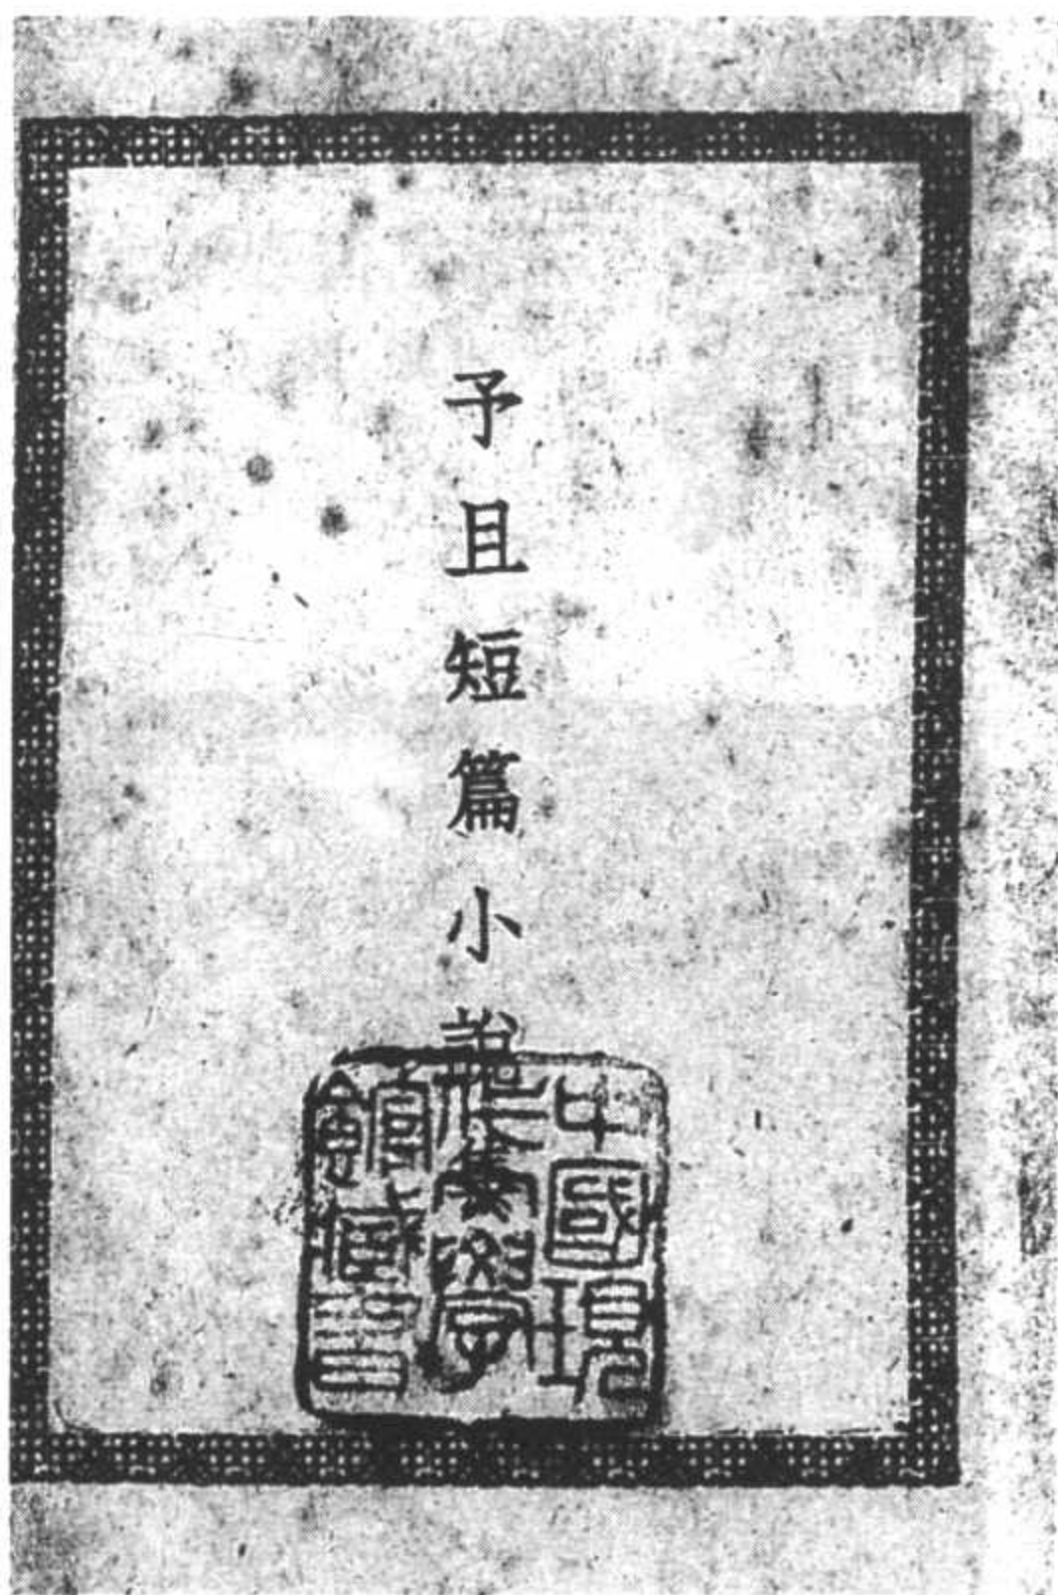 予且短篇小說集
中國現
代文學
館藏書